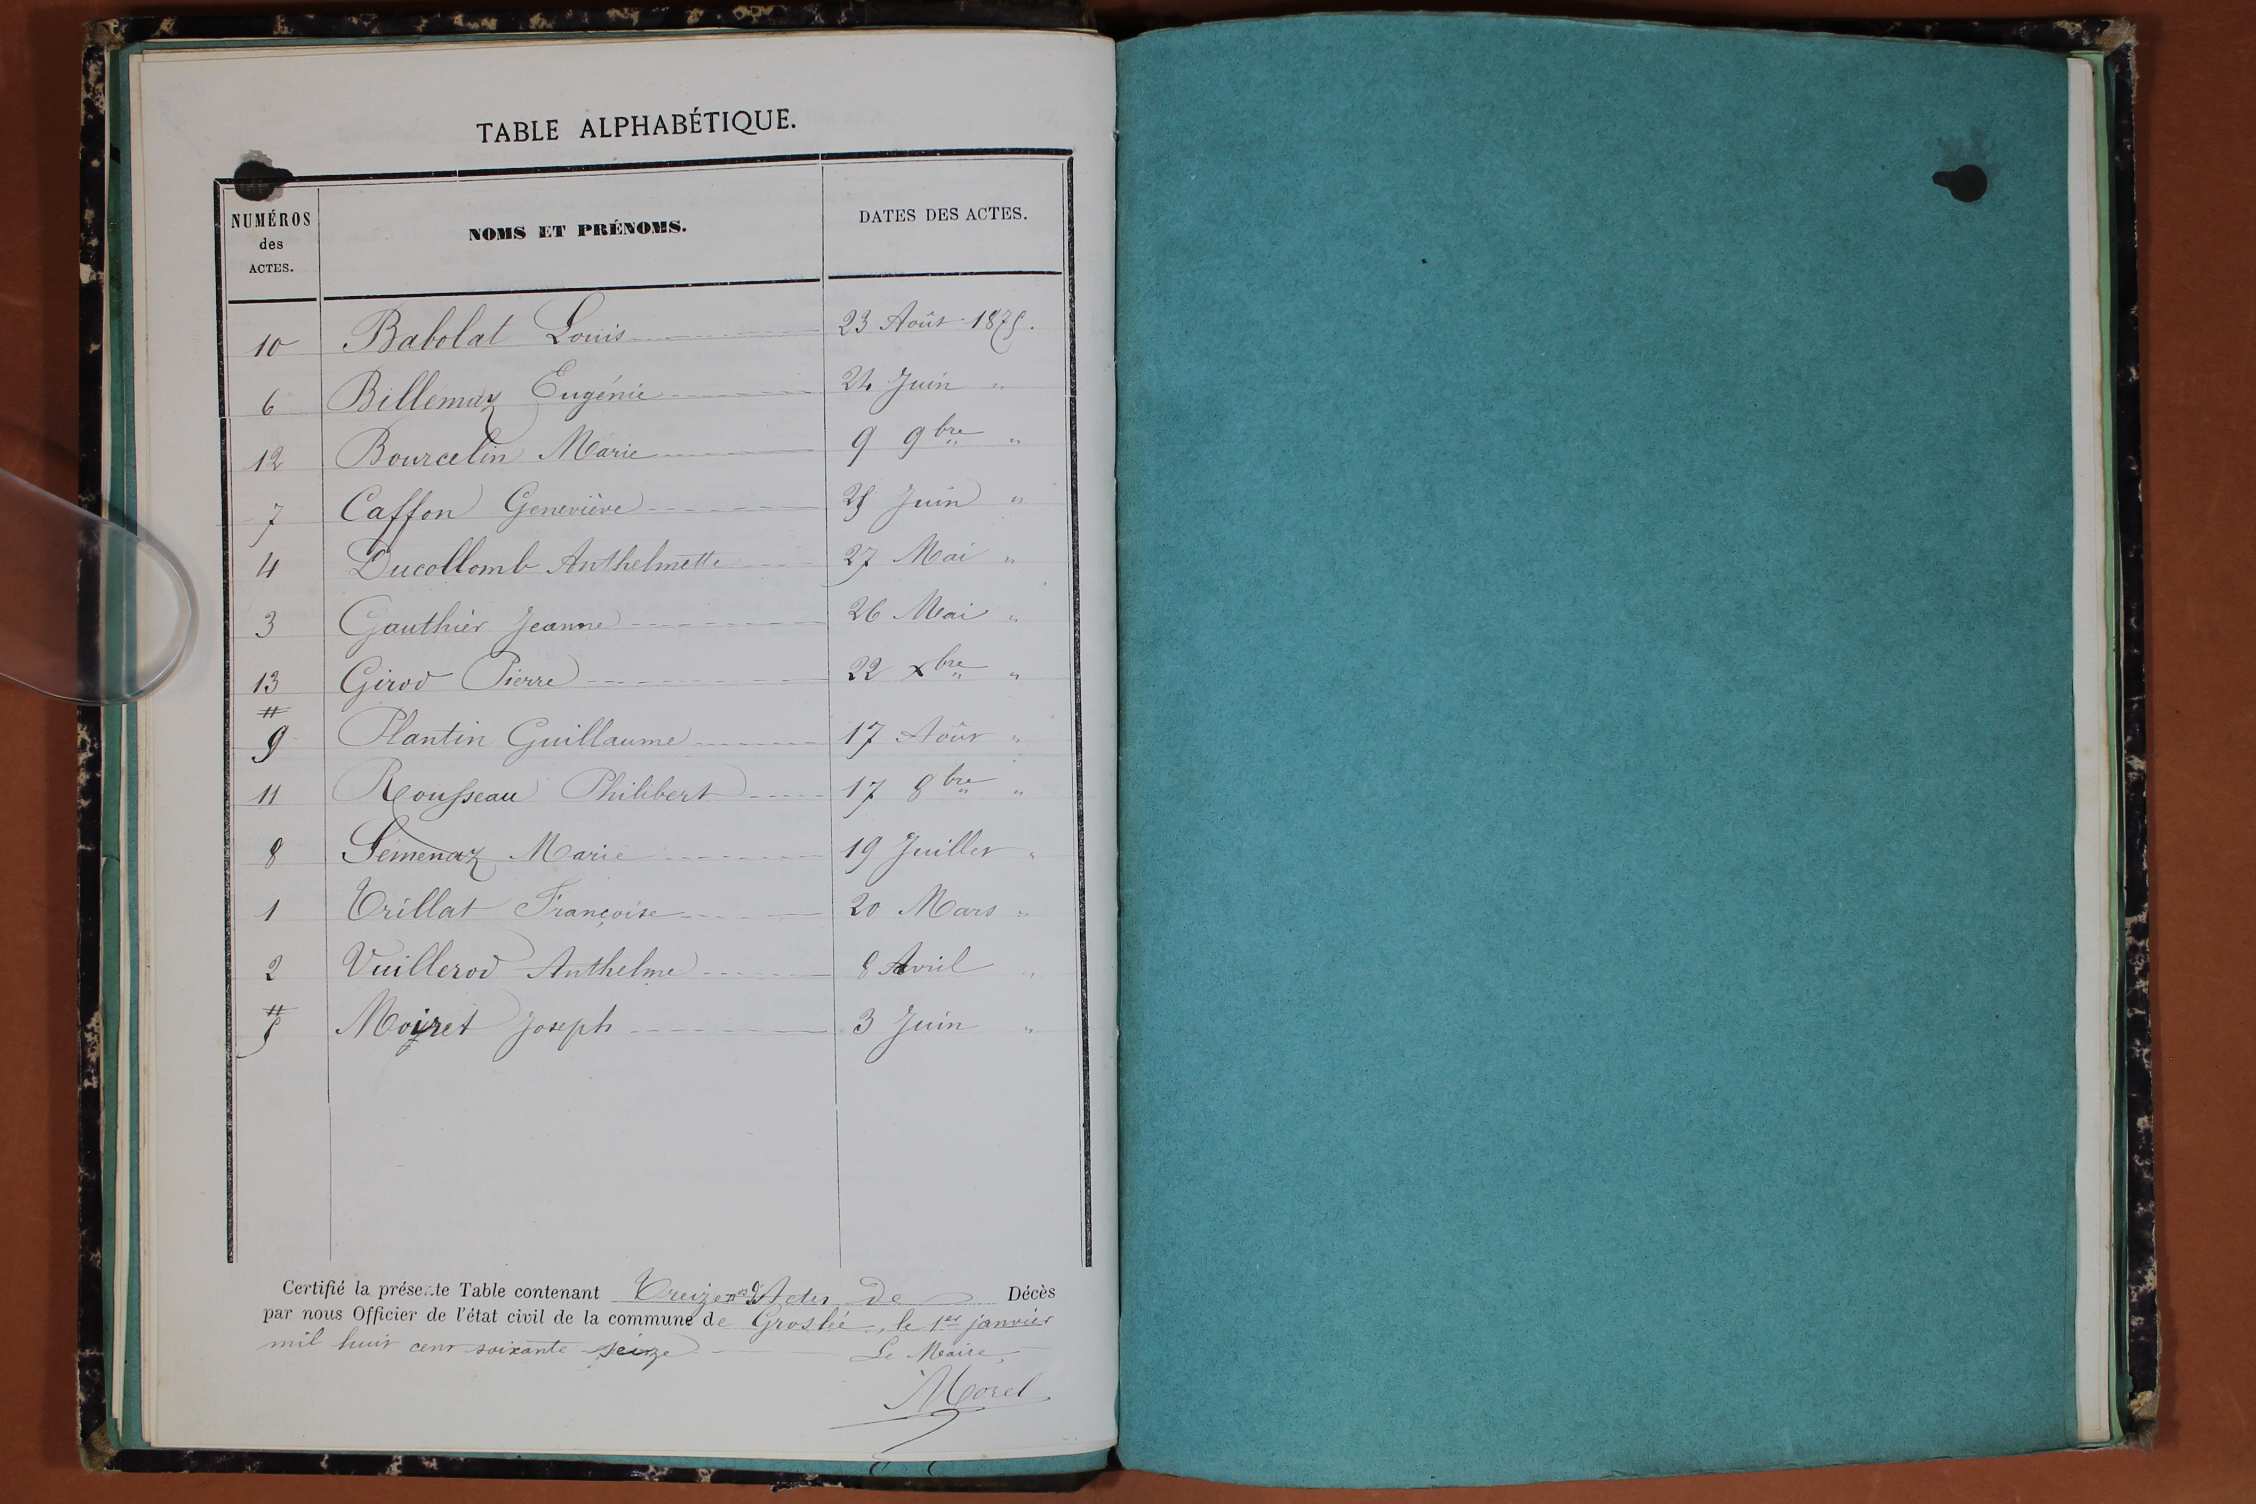 TABLE ALPHABÉTIQUE.
NUMÉROS
des
ACTES.
NOMS ET PRÉNOMS.
DATES DES ACTES.
10 Babolat Louis 23 Août 1875.
6 Billemaz Eugénie 24 Juin "
12 Bourcelin Marie 9 9bre "
7 Caffon Geneviève 25 Juin "
4 Ducollomb Anthelmette 27 Mai "
3 Gauthier Jeanne 26 Mai "
13 Girod Pierre 22 Xbre "
9 Plantin Guillaume 17 Août "
11 Rousseau Philibert 17 8bre "
8 Semenaz Marie 19 Juillet "
1 Trillat Françoise 20 Mars "
2 Vuillerod Anthelme 8 Avril "
5 Moiret Joseph 3 Juin "
Certifié la présente Table contenant Treize Actes de Décès
par nous Officier de l'état civil de la commune de Groslée, le 1er janvier
mil huit cent soixante seize
Le Maire,
Morel